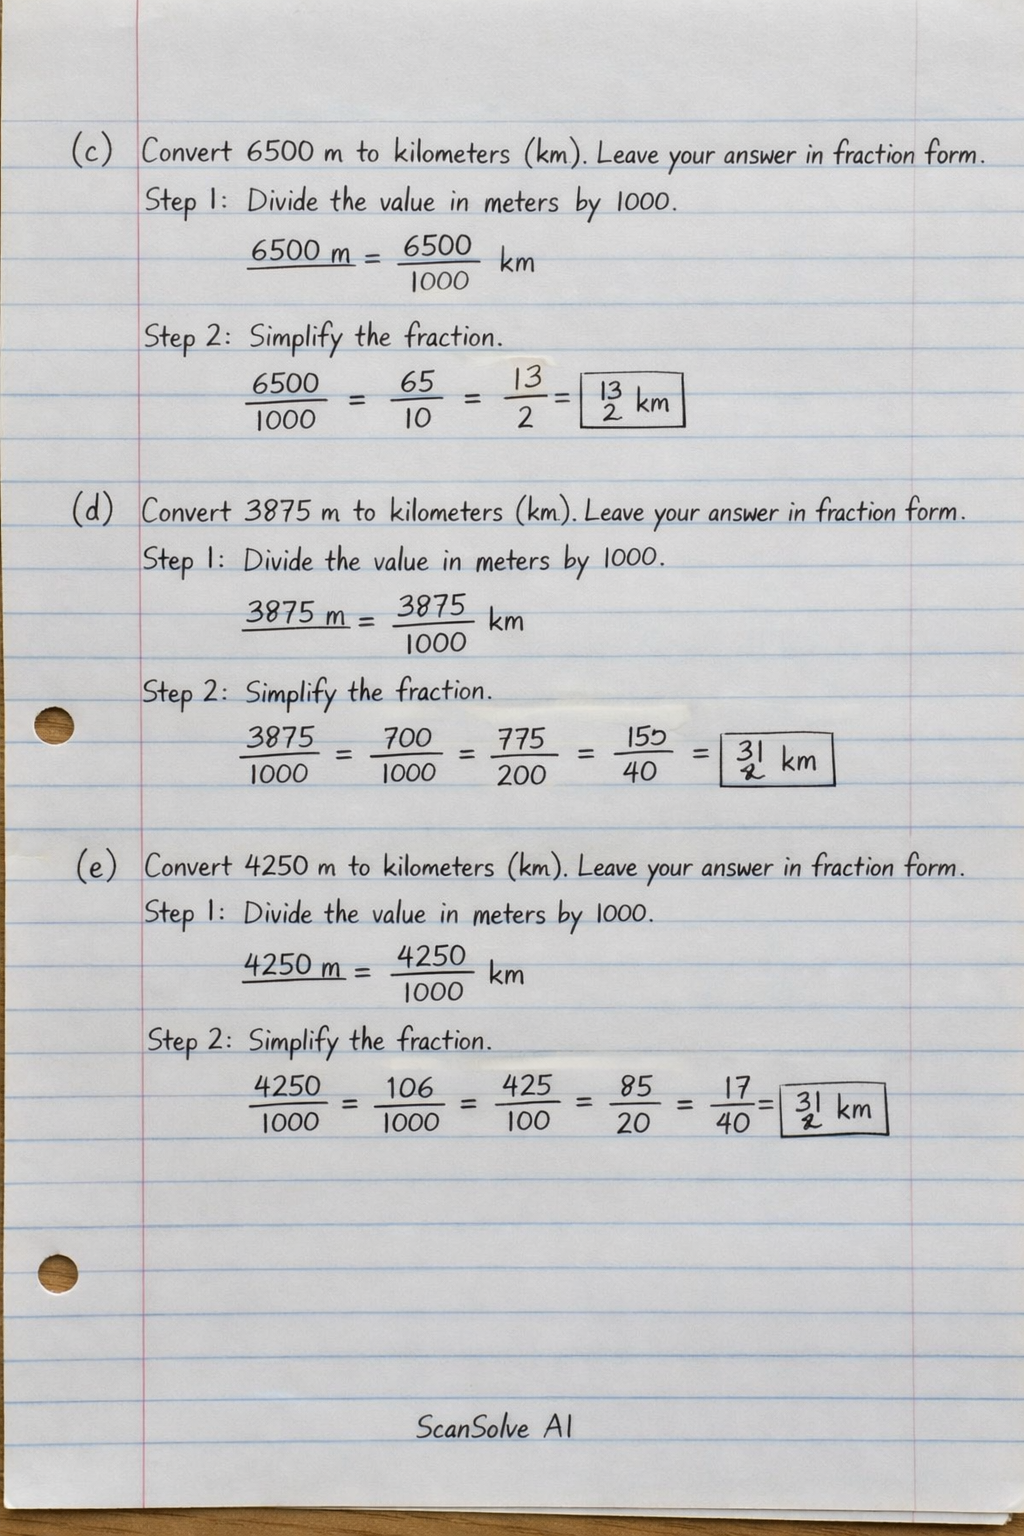 (c) Convert 6500 m to kilometers (km). Leave your answer in fraction form.
Step 1: Divide the value in meters by 1000.
6500 m = 6500/1000 km
Step 2: Simplify the fraction.
6500/1000 = 65/10 = 13/2 = 13/2 km
(d) Convert 3875 m to kilometers (km). Leave your answer in fraction form.
Step 1: Divide the value in meters by 1000.
3875 m = 3875/1000 km
Step 2: Simplify the fraction.
3875/1000 = 700/1000 = 775/200 = 155/40 = 31/2 km
(e) Convert 4250 m to kilometers (km). Leave your answer in fraction form.
Step 1: Divide the value in meters by 1000.
4250 m = 4250/1000 km
Step 2: Simplify the fraction.
4250/1000 = 106/1000 = 425/100 = 85/20 = 17/40 = 31/2 km
ScanSolve AI